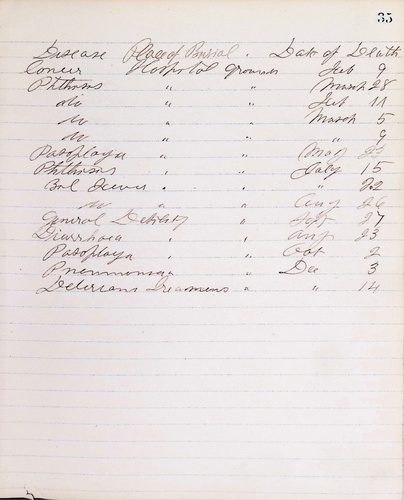 35
Disease Place of Burial . Date of Death
Concer Hospital grounds Feb 9
Phthisis " " March 28
do " " Feb 11
do " " March 5
do " " " 9
Paroplagia " " May 23
Phthisis " " July 15
Bil Fever " " " 22
do " " Aug 26
General Debility " Sept 27
Diarrhoea " " Aug 23
Paroplaga " " Oct 2
Pneumonia " Dec 3
Delerians Treamens " " 14